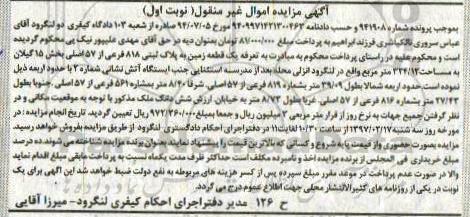 آگهی مزایده اموال غیر منقول( نوبت اول)
بموجب پرونده شماره ۹۴۱۹۰۸ و حسب دادنامه ۹۴۰۹۹۷۱۴۲۱۳۰۰۴۶۳ مورخ ۹۴/۰۷/۰۵ صادره از شعبه ۱۰۳ دادگاه کیفری دو لنگرود آقای
عباس سروری تالکیاشری فرزند ابراهیم به پرداخت مبلغ ۸۷/۰۰۰/۰۰۰ تومان بعنوان دیه در حق آقای مهدی علیپور نیک پی محکوم گردیده
است و محکوم علیه در راستای پرداخت محکوم به مبادرت به تعرفه یک قطعه زمین به پلاک ثبتی ۸۱۸ فرعی از ۵۷ اصلی بخش ۱۵ گیلان
به مساحت ۳۲۴/۱۲ متر مربع واقع در لنگرود انزلی محله بعد از مدرسه استثنایی جنب ایستگاه آتش نشانی شماره ۳ با حدود اربعه ذیل
نموده است.حدود اربعه شمالا بطول ۳۹/۰۹ بشماره ۸۱۹ فرعی از ۵۷ اصلی. شرقا ۸/۴۰ متر بشماره ۵۶۱ فرعی از ۵۷ اصلی. جنوبا بطول
۳۷/۴۳ متر بشماره ۸۱۶ فرعی از ۵۷ اصلی. غربا بطول ۸/۸۷ متر به خیابان. ارزش شش دانگ ملک مذکور با توجه به موقعیت مکانی و در
نظر گرفتن جمیع جهات به نرخ روز از قرار متر مربعی ۳ میلیون ریال و جمعا بمبلغ ۹۷۲/۳۶۰/۰۰۰ ریال تعیین گردید. تاریخ انجام مزایده :
مورخه روز سه شنبه ۱۳۹۷/۰۳/۱۷ از ساعت ۱۰/۳۰ لغایت ۱۱ در دفتر اجرای احکام دادگستری لنگرود از طریق مزایده بفروش خواهد رسید.
مزایده بصورت حضوری و از قیمت پایه شروع و کسانی که بالاترین قیمت را پیشنهاد نمایند بعنوان برنده مزایده شناخته می شوند.ده درصد
مبلغ خریداری فی المجلس از برنده مزایده اخذ و نامبرده مکلف است حداکثر ظرف مدت یکماه نسبت به پرداخت مابقی مبلغ اقدام نماید
والا در صورت عدم پرداخت در موعد مقرر مبلغ سپرده پس از کسر هزینه های مربوطه به نفع دولت ضبط خواهد شد این آگهی برای یک
نوبت در یکی از روزنامه های کثیرالانتشار محلی جهت اطلاع عموم درج می گردد.
ح ۱۲۶ مدیر دفتر اجرای احکام کیفری لنگرود- میرزا آقایی